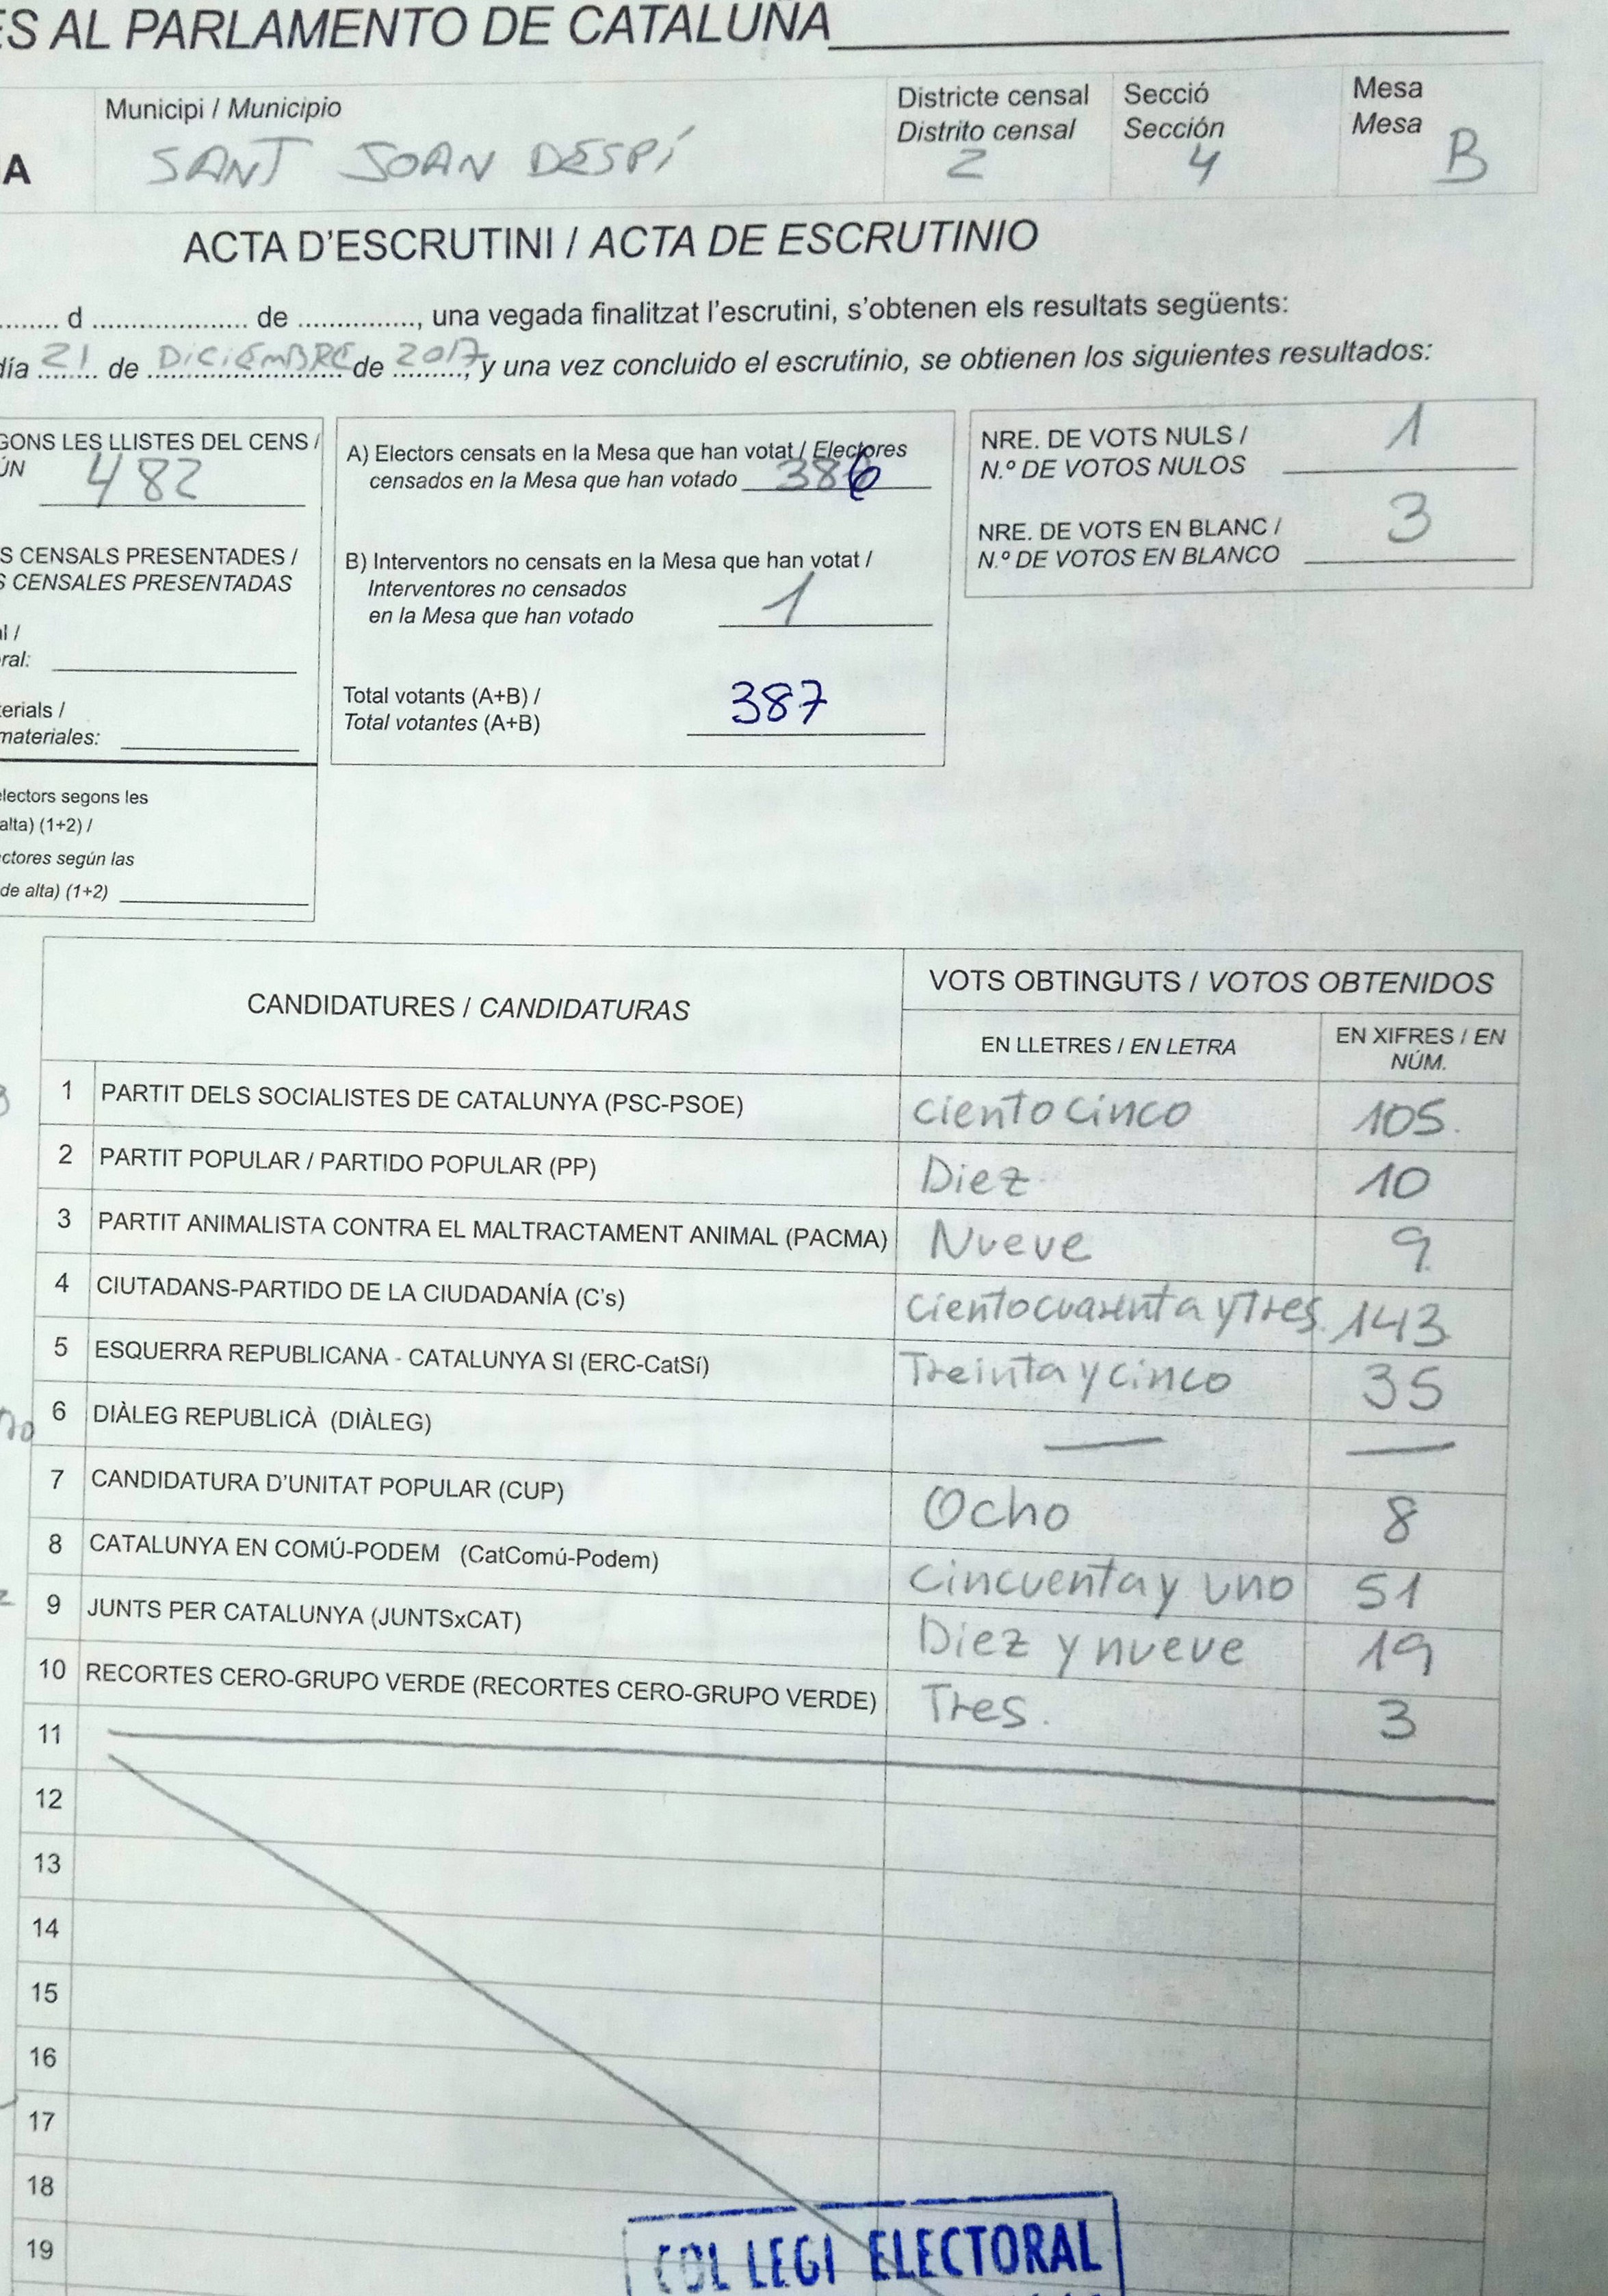 ES AL PARLAMENTO DE CATALUÑA
Municipi / Municipio
Districte censal
Distrito censal
Secció
Sección
Mesa
Mesa
A
SANT JOAN DESPÍ
2
4
B
ACTA D'ESCRUTINI / ACTA DE ESCRUTINIO
........ d .................... de ..............., una vegada finalitzat l'escrutini, s'obtenen els resultats següents:
día 21 de DICIEMBRE de 2017, y una vez concluido el escrutinio, se obtienen los siguientes resultados:
GONS LES LLISTES DEL CENS /
ÚN 482
S CENSALS PRESENTADES /
S CENSALES PRESENTADAS
al /
oral:
terials /
materiales:
electors segons les
alta) (1+2) /
ectores según las
de alta) (1+2)
A) Electors censats en la Mesa que han votat / Electores
censados en la Mesa que han votado 386
B) Interventors no censats en la Mesa que han votat /
Interventores no censados
en la Mesa que han votado 1
Total votants (A+B) /
Total votantes (A+B) 387
NRE. DE VOTS NULS /
N.º DE VOTOS NULOS 1
NRE. DE VOTS EN BLANC /
N.º DE VOTOS EN BLANCO 3
CANDIDATURES / CANDIDATURAS
VOTS OBTINGUTS / VOTOS OBTENIDOS
EN LLETRES / EN LETRA
EN XIFRES / EN
NÚM.
1 PARTIT DELS SOCIALISTES DE CATALUNYA (PSC-PSOE) ciento cinco 105.
2 PARTIT POPULAR / PARTIDO POPULAR (PP) Diez 10
3 PARTIT ANIMALISTA CONTRA EL MALTRACTAMENT ANIMAL (PACMA) Nueve 9
4 CIUTADANS-PARTIDO DE LA CIUDADANÍA (C's) ciento cuarenta y tres. 143
5 ESQUERRA REPUBLICANA - CATALUNYA SI (ERC-CatSí) Treinta y cinco 35
6 DIÀLEG REPUBLICÀ (DIÀLEG) — —
7 CANDIDATURA D'UNITAT POPULAR (CUP) Ocho 8
8 CATALUNYA EN COMÚ-PODEM (CatComú-Podem) Cincuenta y uno 51
9 JUNTS PER CATALUNYA (JUNTSxCAT) Diez y nueve 19
10 RECORTES CERO-GRUPO VERDE (RECORTES CERO-GRUPO VERDE) Tres. 3
11
12
13
14
15
16
17
18
19
COL LEGI ELECTORAL